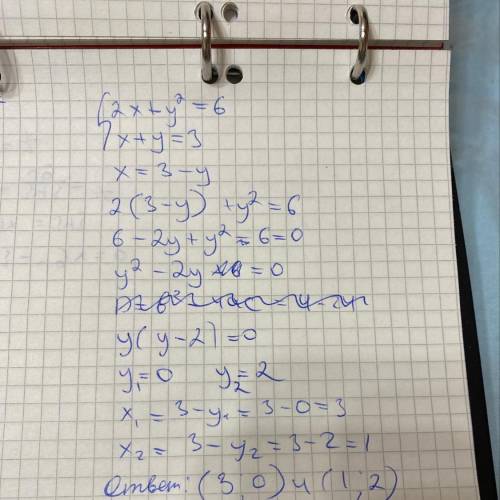 {2x+y²=6
x+y=3
x=3-y
2(3-y)+y²=6
6-2y+y²-6=0
y²-2y=0
y(y-2)=0
y₁=0 y₂=2
x₁=3-y₁=3-0=3
x₂=3-y₂=3-2=1
Ответ: (3,0) и (1,2)